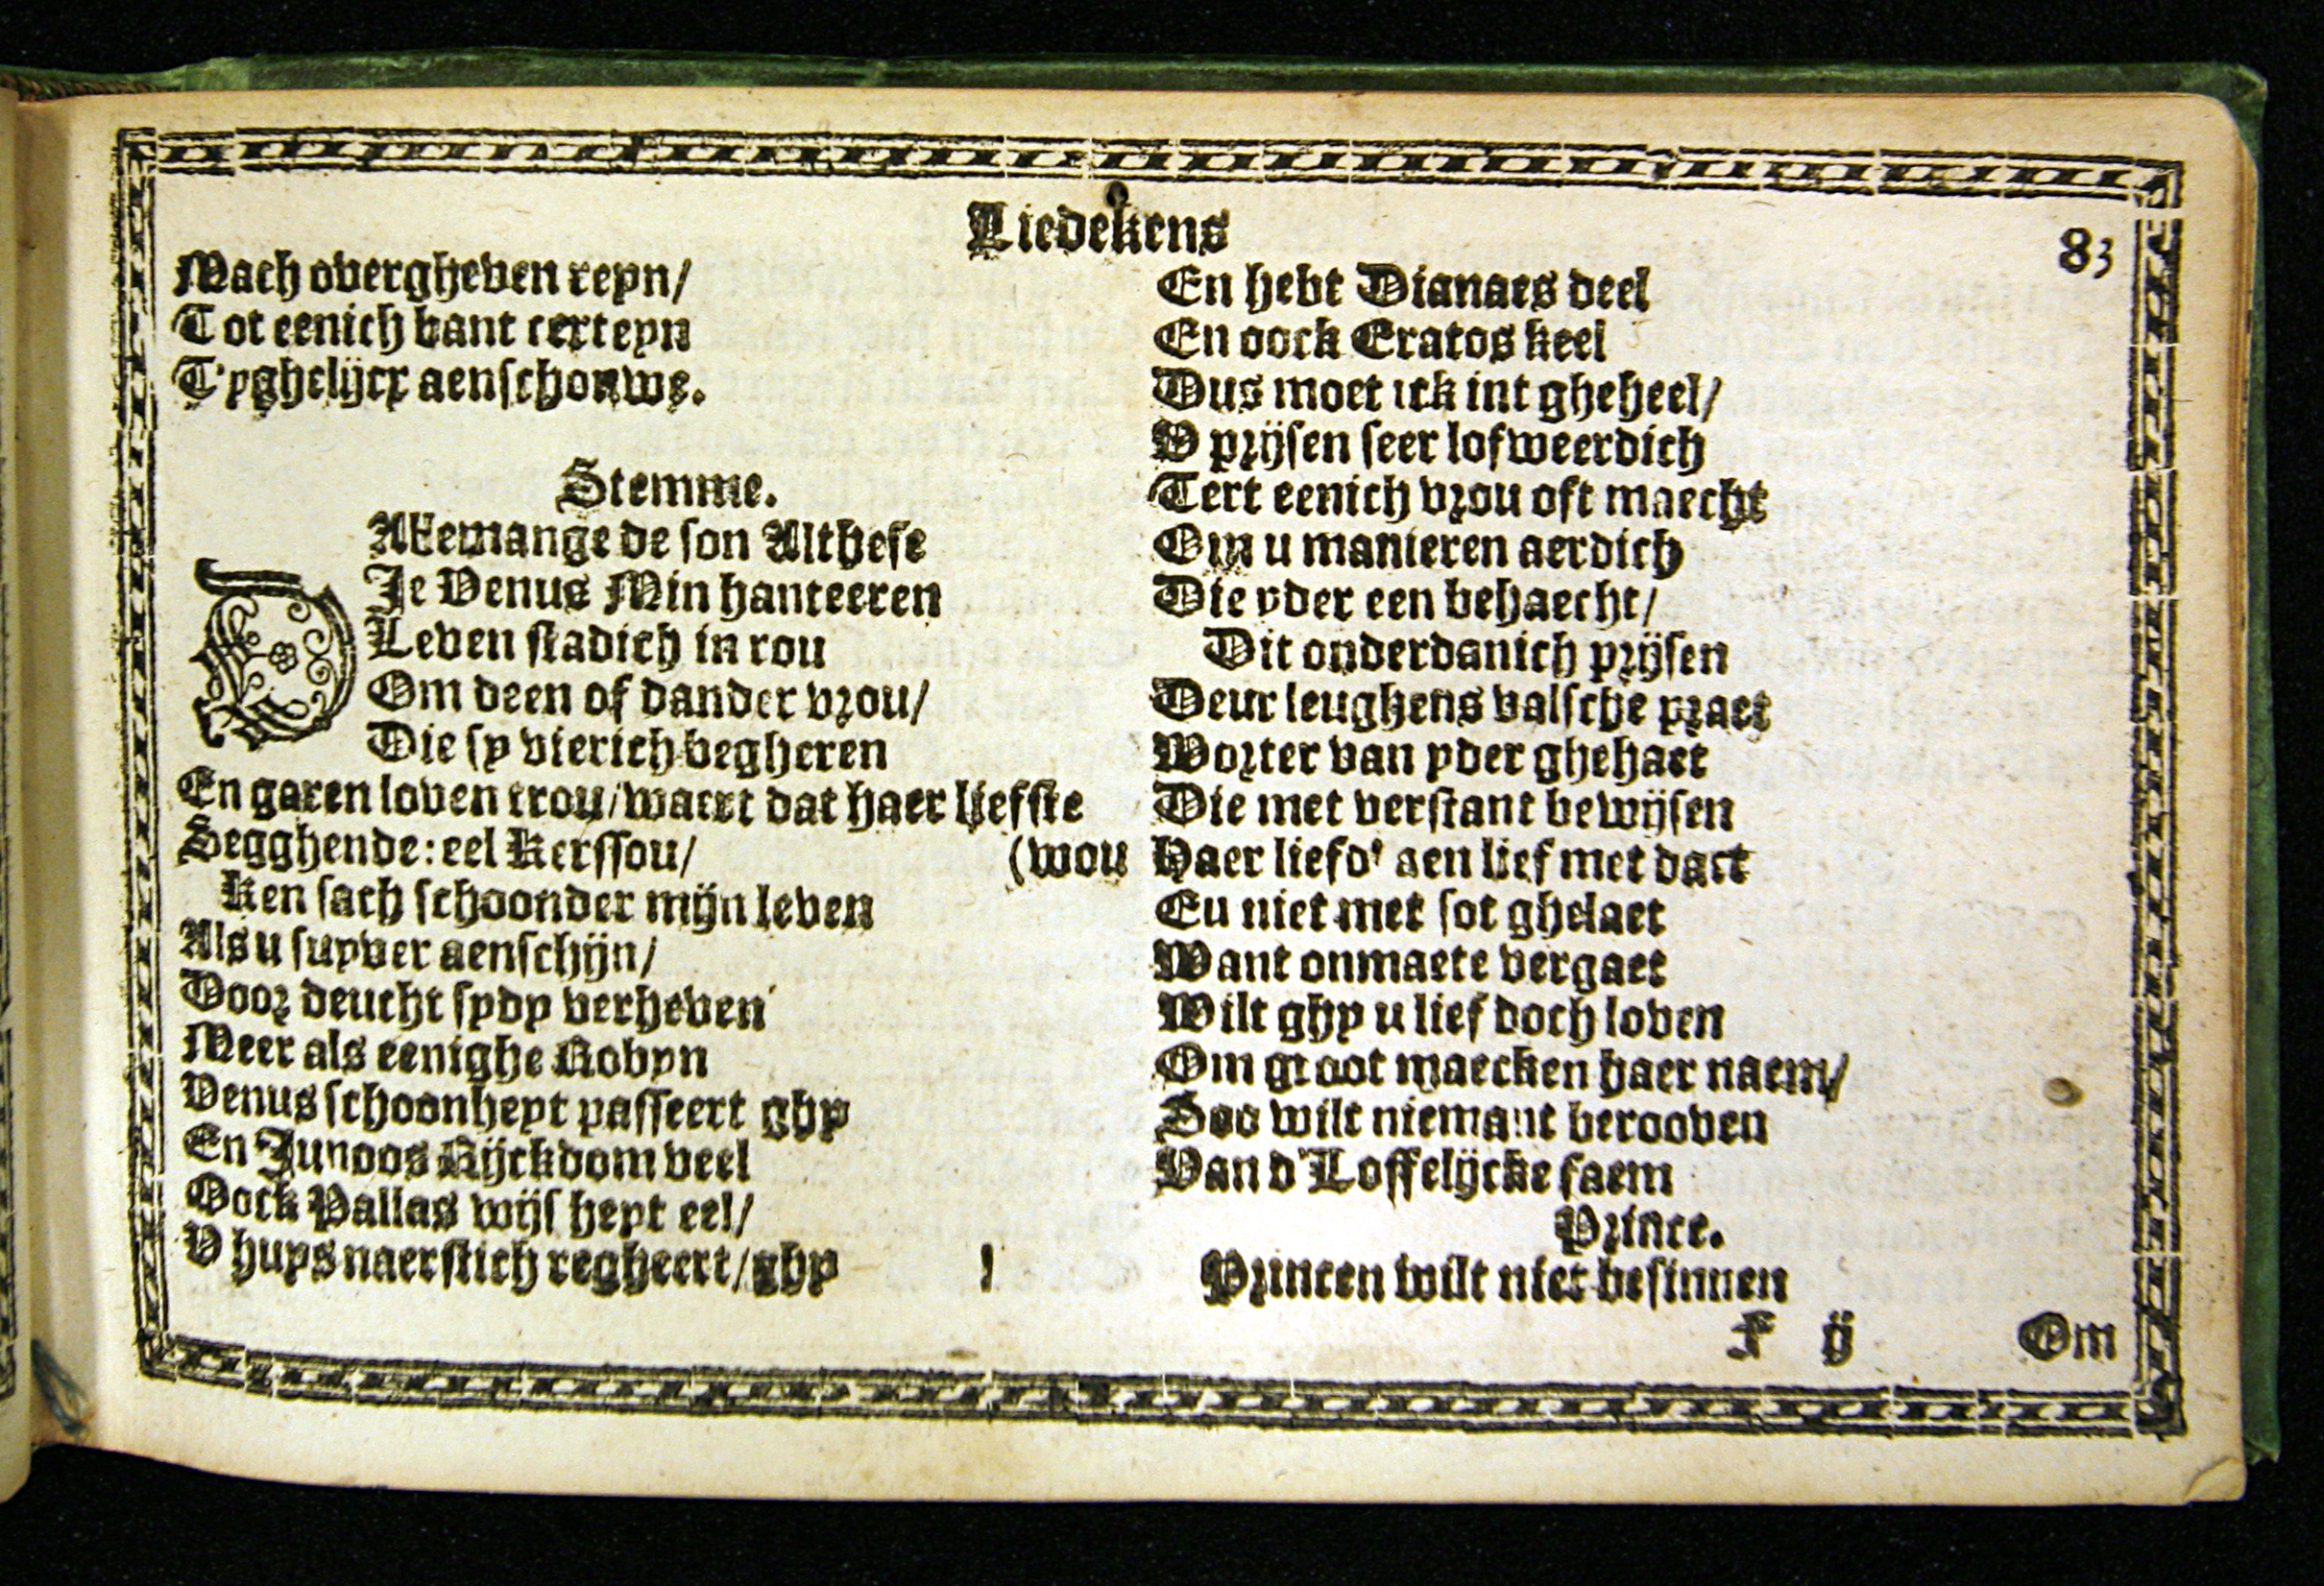 Liedekens
83
Mach overgheven reyn/
Tot eenich vant certeyn
T'yghelijcx aenschouwe.
Stemme.
Allemange de son Althese
DJe Venus Min hanteeren
Leven stadich in rou
Om deen of dander vrou/
Die sy vierich begheren
En garen loven trou/waert dat haer liefste
(wou
Segghende: eel Kerssou/
Ken sach schoonder mijn leven
Als u suyver aenschijn/
Door deucht sydy verheven
Meer als eenighe Robyn
Venus schoonheyt passeert ghy
En Junoos Rijckdom veel
Oock Pallas wijs heyt eel/
V huys naerstich regheert/ghy
En hebt Dianaes deel
En oock Eratos keel
Dus moet ick int gheheel/
V prijsen seer lofweerdich
Tert eenich vrou oft maecht
Om u manieren aerdich
Die yder een behaecht/
Dit onderdanich prijsen
Deur leughens valsche praet
Worter van yder ghehaet
Die met verstant bewijsen
Haer liefd' aen lief met daet
Eu niet met sot ghelaet
Want onmaete vergaet
Wilt ghy u lief doch loven
Om groot maecken haer naem/
Soo wilt niemant berooven
Van d'Loffelijcke faem
Prince.
Princen wilt niet besinnen
F ij
Om